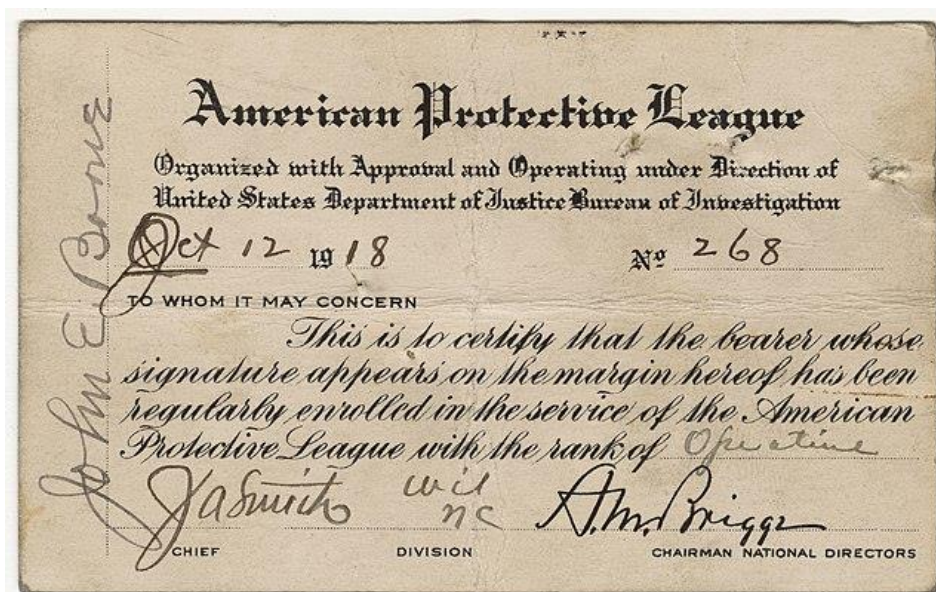 American Protective League
Organized with Approval and Operating under Direction of
United States Department of Justice Bureau of Investigation
Oct 12 1918 No 268
TO WHOM IT MAY CONCERN
This is to certify that the bearer whose
signature appears on the margin hereof has been
regularly enrolled in the service of the American
Protective League with the rank of Operative
J A Smith Wil A. M. Briggs
NC
CHIEF DIVISION CHAIRMAN NATIONAL DIRECTORS
John E Bone